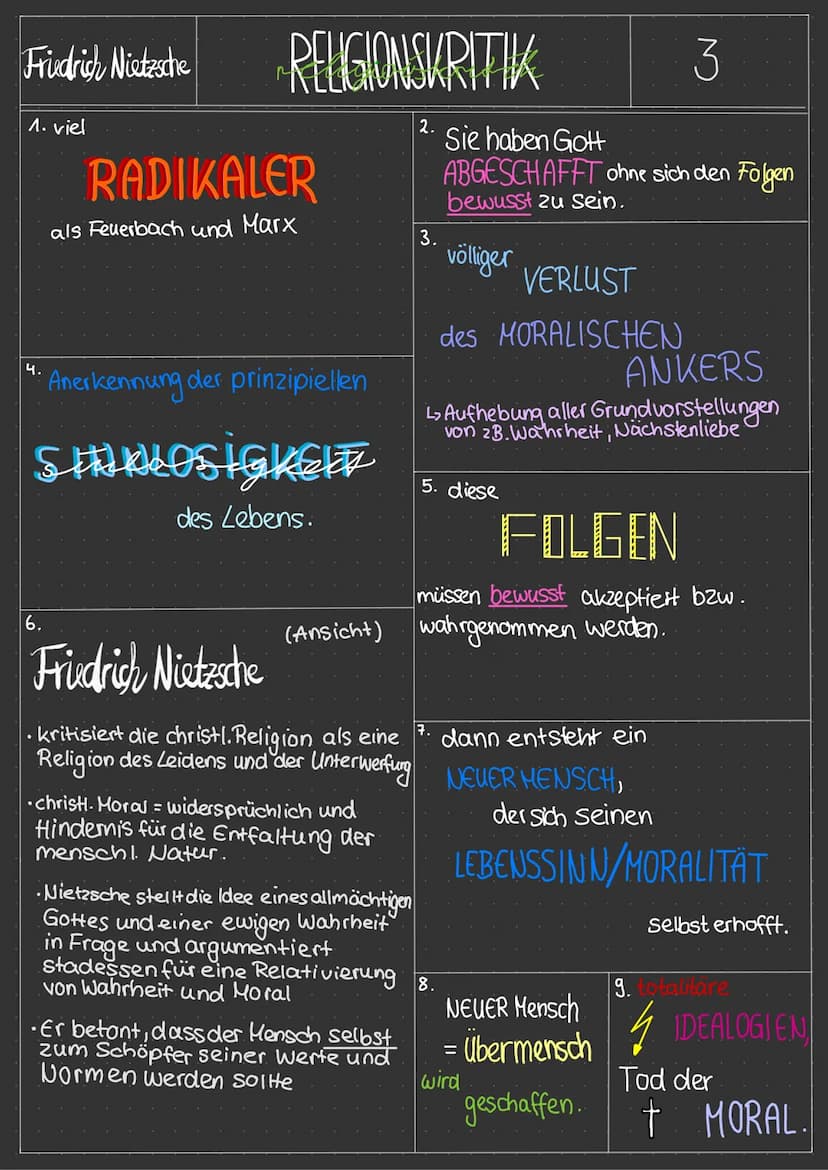 Friedrich Nietzsche
RELIGIONSKRITIK
religionskritik
3
1. viel
RADIKALER
als Feuerbach und Marx
2. Sie haben Gott
ABGESCHAFFT ohne sich den Folgen
bewusst zu sein.
3. völliger
VERLUST
des MORALISCHEN
ANKERS
↳ Aufhebung aller Grundvorstellungen
von zB. Wahrheit, Nächstenliebe
4. Anerkennung der prinzipiellen
SINNLOSIGKEIT
sinnlosigkeit
des Lebens.
5. diese
FOLGEN
müssen bewusst akzeptiert bzw.
wahrgenommen werden.
6. (Ansicht)
Friedrich Nietzsche
· kritisiert die christl. Religion als eine
Religion des Leidens und der Unterwerfung
· christl. Moral = widersprüchlich und
Hindernis für die Entfaltung der
menschl. Natur.
· Nietzsche stellt die Idee eines allmächtigen
Gottes und einer ewigen Wahrheit
in Frage und argumentiert
stadessen für eine Relativierung
von Wahrheit und Moral
· Er betont, dass der Mensch selbst
zum Schöpfer seiner Werte und
Normen werden sollte
7. dann entsteht ein
NEUER MENSCH,
der sich seinen
LEBENSSINN/MORALITÄT
selbst erhofft.
8. NEUER Mensch
= Übermensch
wird
geschaffen.
9. totalitäre
IDEALOGIEN,
Tod der
MORAL.